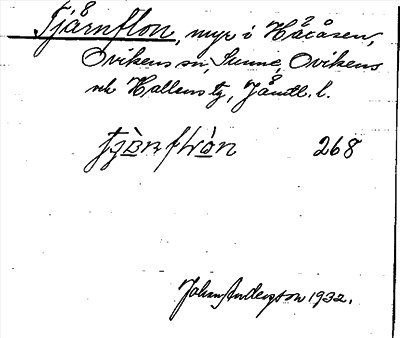 Tjårnflon, myr i Håcåsen,
Ovikens sn, Sunne, Ovikens
och Hallens tg, Jämtl. l.
268
Johan Anderson 1932.